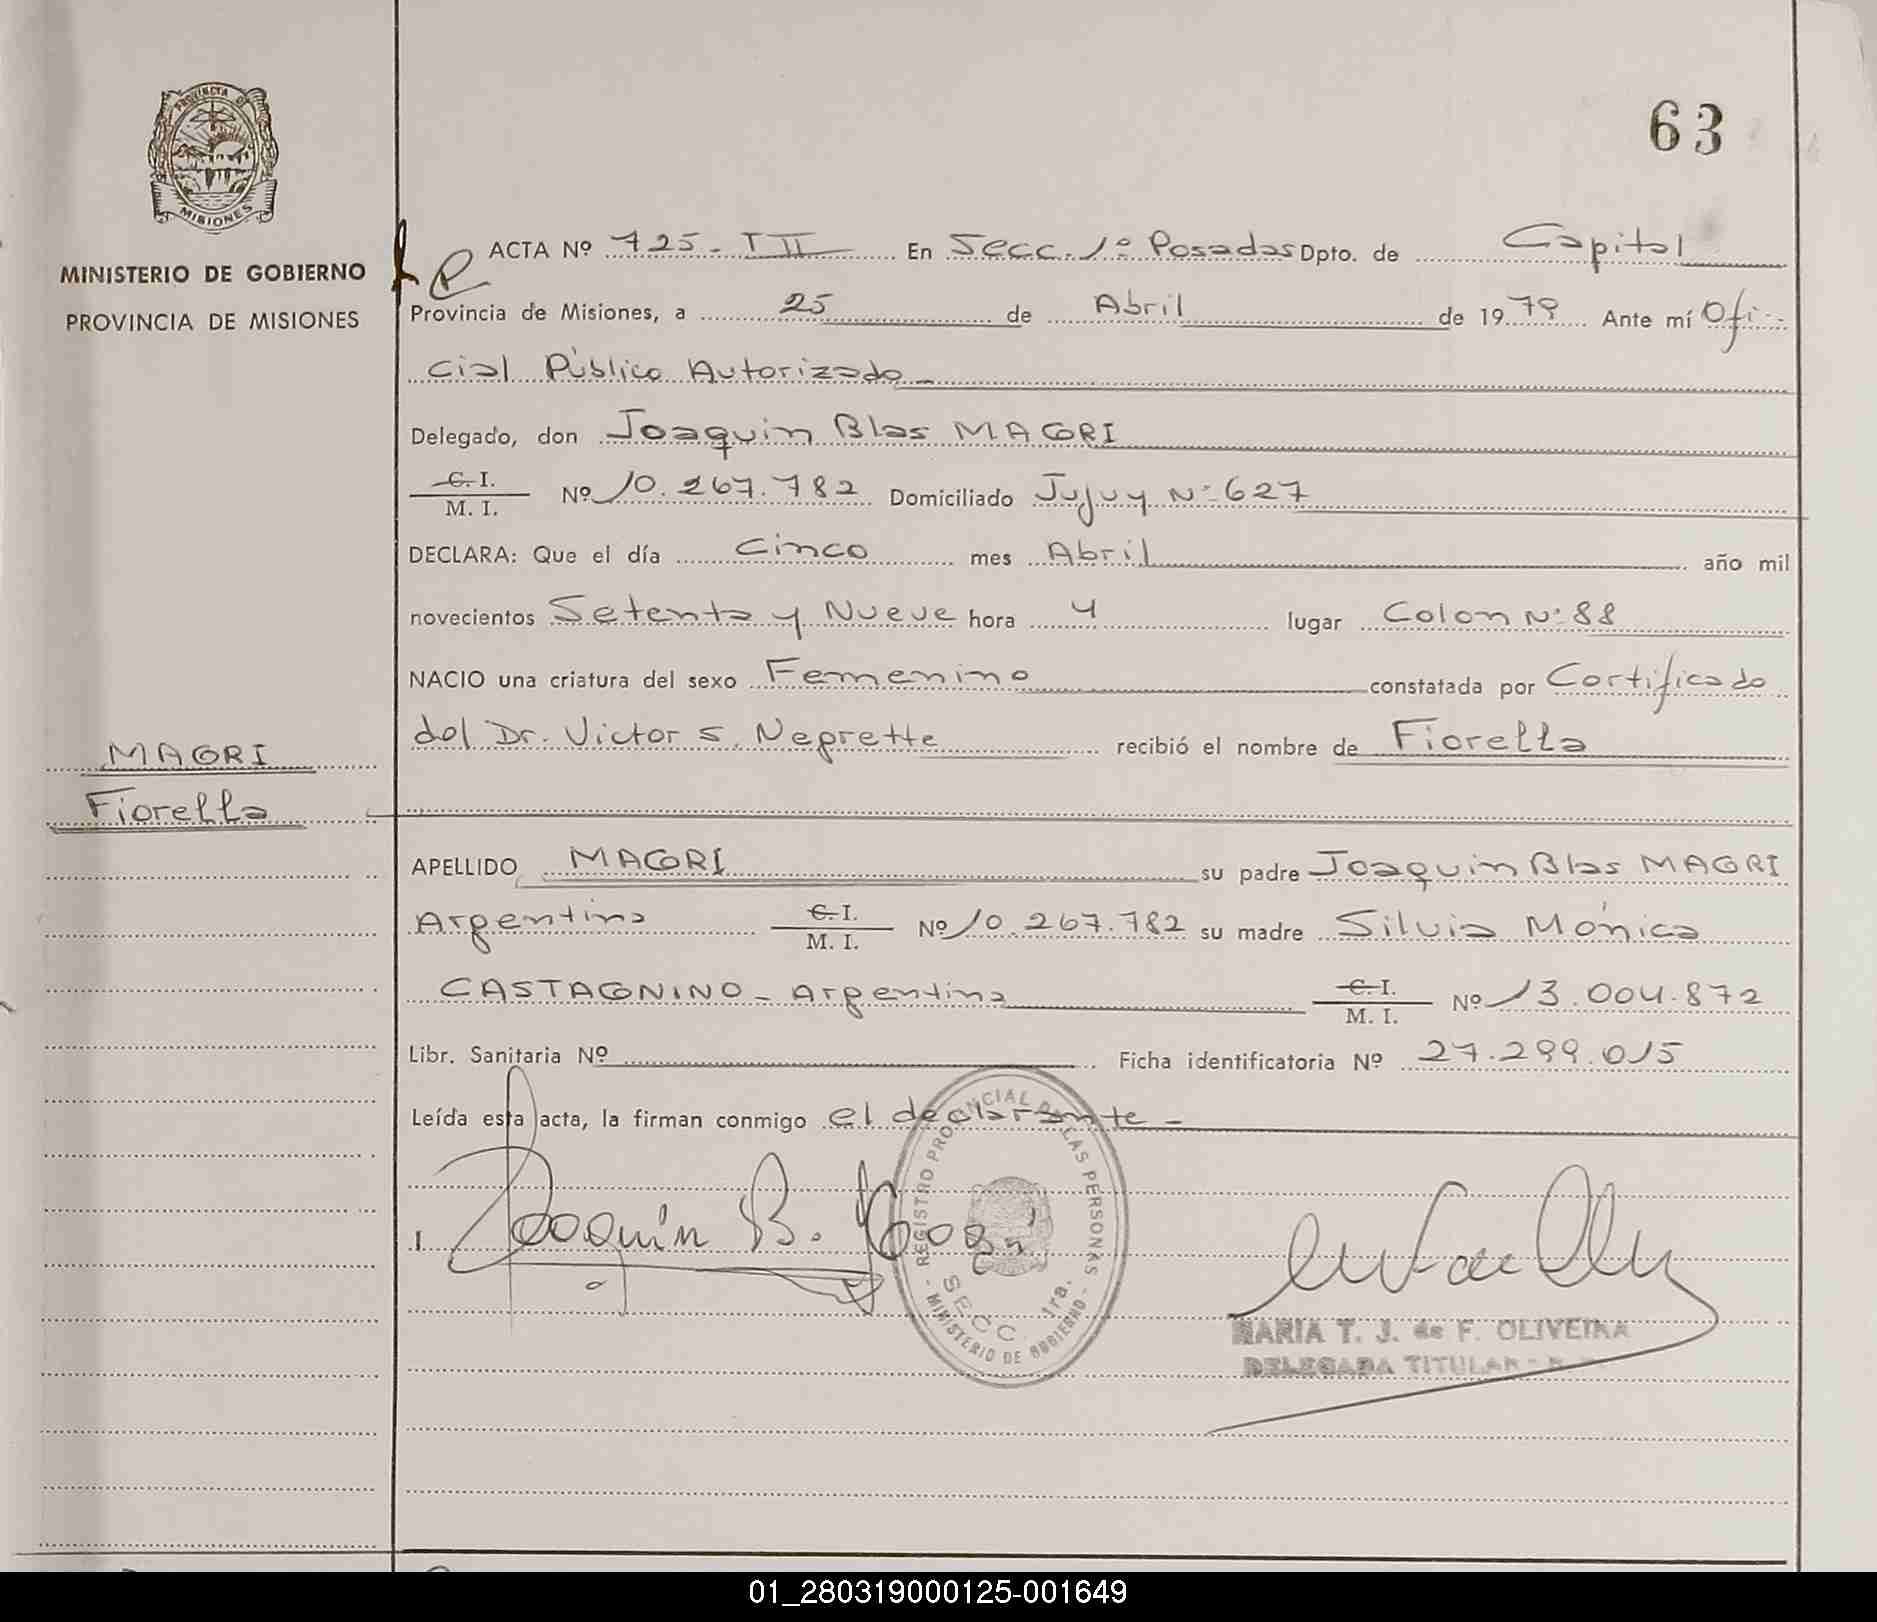 63
PROVINCIA DE
MISIONES
MINISTERIO DE GOBIERNO
PROVINCIA DE MISIONES
ACTA Nº 725-III En Secc. 1º Posadas Dpto. de Capital
Provincia de Misiones, a 25 de Abril de 1979 Ante mí Ofi-
cial Público Autorizado
Delegado, don Joaquin Blas MAGRI
C. I.
M. I. Nº 10.267.782 Domiciliado Jujuy Nº 627
DECLARA: Que el día Cinco mes Abril año mil
novecientos Setenta y Nueve hora 4 lugar Colon Nº 88
NACIO una criatura del sexo Femenino constatada por Certificado
del Dr. Victor S. Negrette recibió el nombre de Fiorella
MAGRI
Fiorella
APELLIDO MAGRI su padre Joaquin Blas MAGRI
Argentina C. I.
M. I. Nº 10.267.782 su madre Silvia Mónica
CASTAGNINO - Argentina C. I.
M. I. Nº 13.004.872
Libr. Sanitaria Nº Ficha identificatoria Nº 27.299.015
Leída esta acta, la firman conmigo el declarante -
Joaquín B. Magri
REGISTRO PROVINCIAL DE LAS PERSONAS
SECC. 1ra.
MINISTERIO DE GOBIERNO
MARIA T. J. de F. OLIVEIRA
DELEGADA TITULAR
01_280319000125-001649